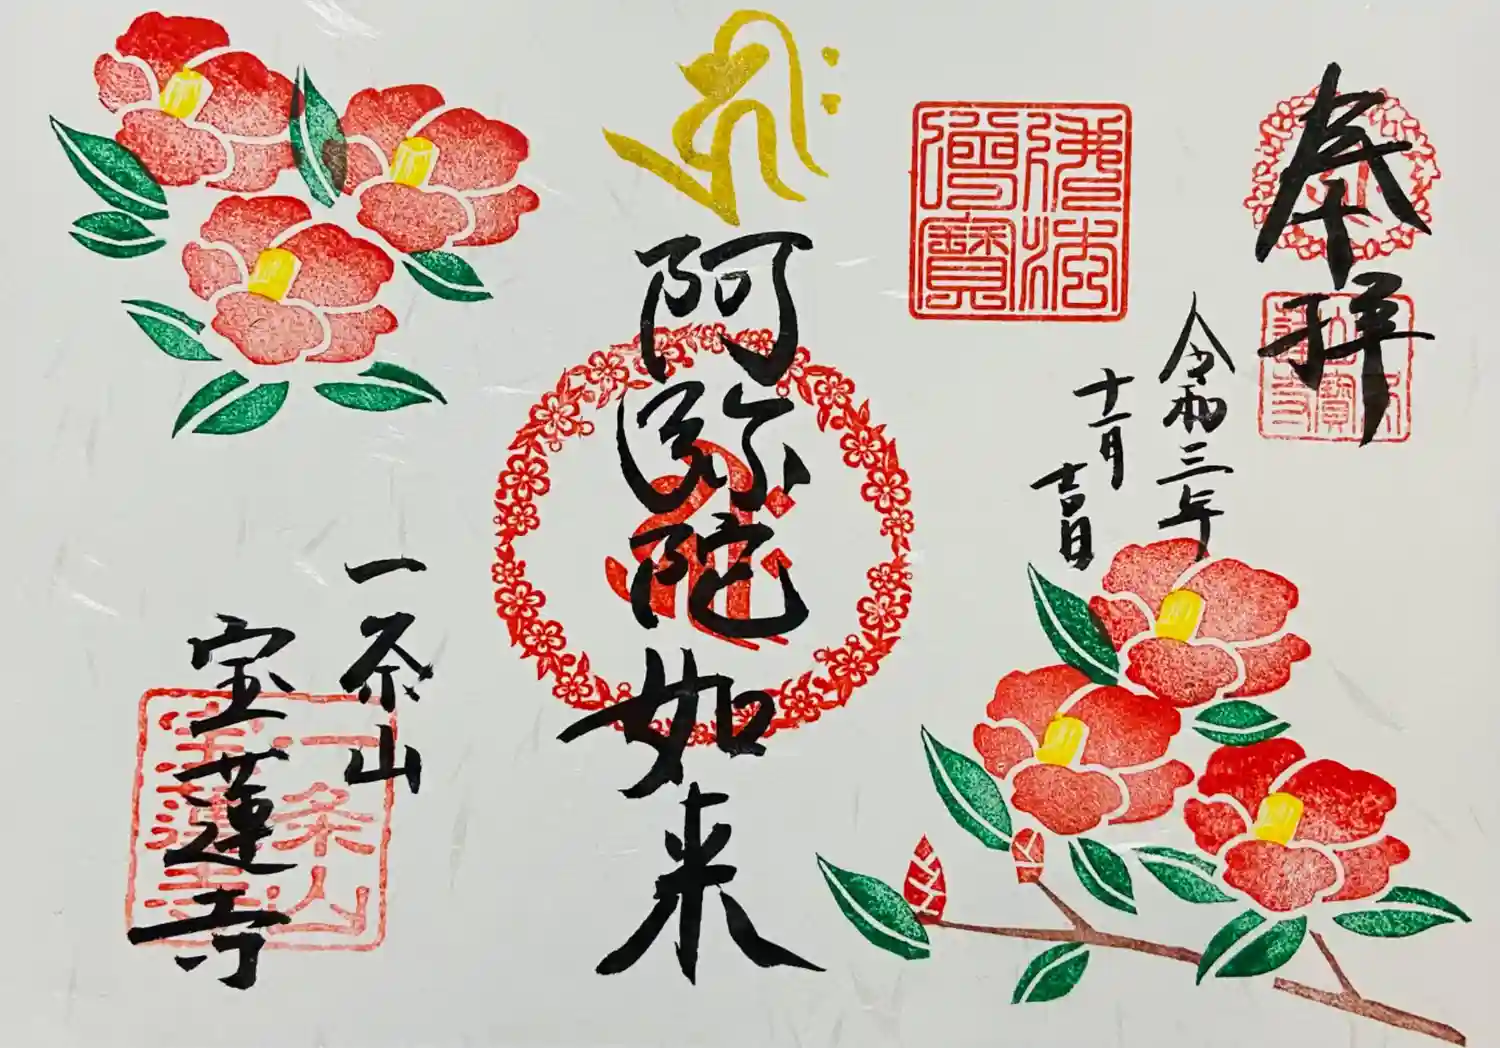 奉拝
令和三年
十一月
吉日
佛法僧寶
阿弥陀如来
一条山
宝蓮寺
一条山
宝蓮寺